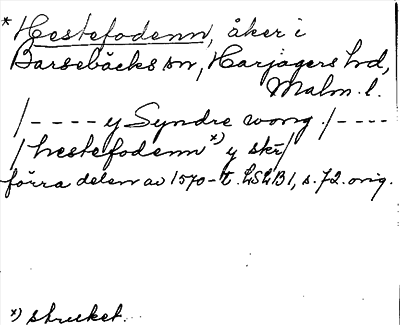 * Hestefodenn, åker i
Barsebäcks sn, Harjagers hd,
Malm. l.
/---- y Syndre wong./----
/hestefodenn *) y skr/
förra delen av 1570-t. LSLB1, s. 72. orig.
*) struket.